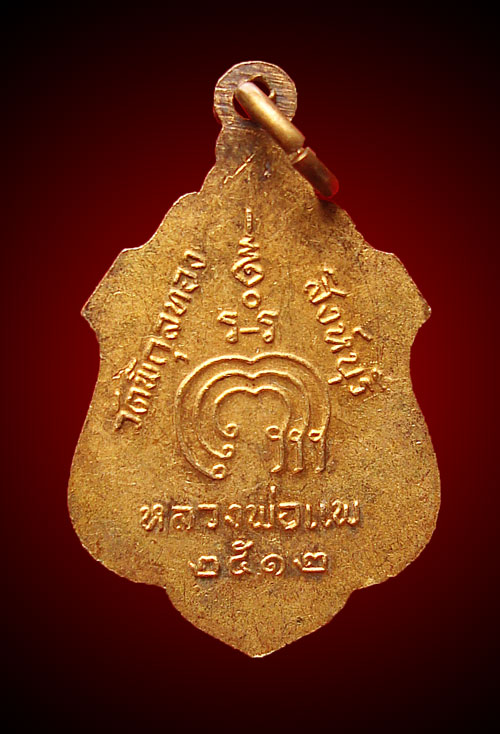 วัดพิกุลทอง
สิงห์บุรี
หลวงพ่อแพ
๒๕๑๒